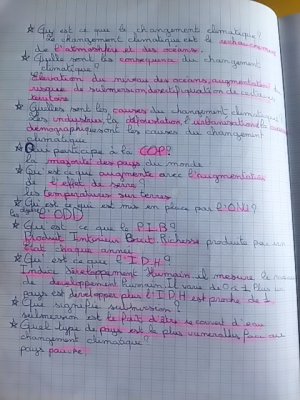 ☆ Qu'est ce que le changement climatique?
Le changement climatique est le réchauffement
de l'atmosphère et des océans.
☆ Quelle sont les conséquences du changement
climatique?
Elévation du niveau des océans, augmentation du
risque de submersion, désertification de certains
territoire
☆ Quelles sont les causes du changement climatique?
Les industries, la déforestation, l'urbanisation, la
démographie sont les causes du changement
climatique
☆ Qui participe à la COP?
la majorité des pays du monde
☆ Qu'est ce qui augmente avec l'augmentation
de l'effet de serre?
les températures sur terre
☆ Qu'est ce qui est mis en place par l'ONU?
les L'ODD
☆ Que est ce que le P.I.B?
Produit Intérieur Brut. Richesse produite par un
Etat chaque année
☆ Qu'est ce que l'I.D.H?
Indice Développement Humain il mesure le
de développement Humain. Il varie de 0 à 1. Plus le
pays est développer plus l'I.D.H est proche de 1.
☆ Que signifie submersion?
submersion est le fait d'être recouvert d'eau
☆ Quel type de pays est le plus vulnérable face au
changement climatique?
pays pauvre